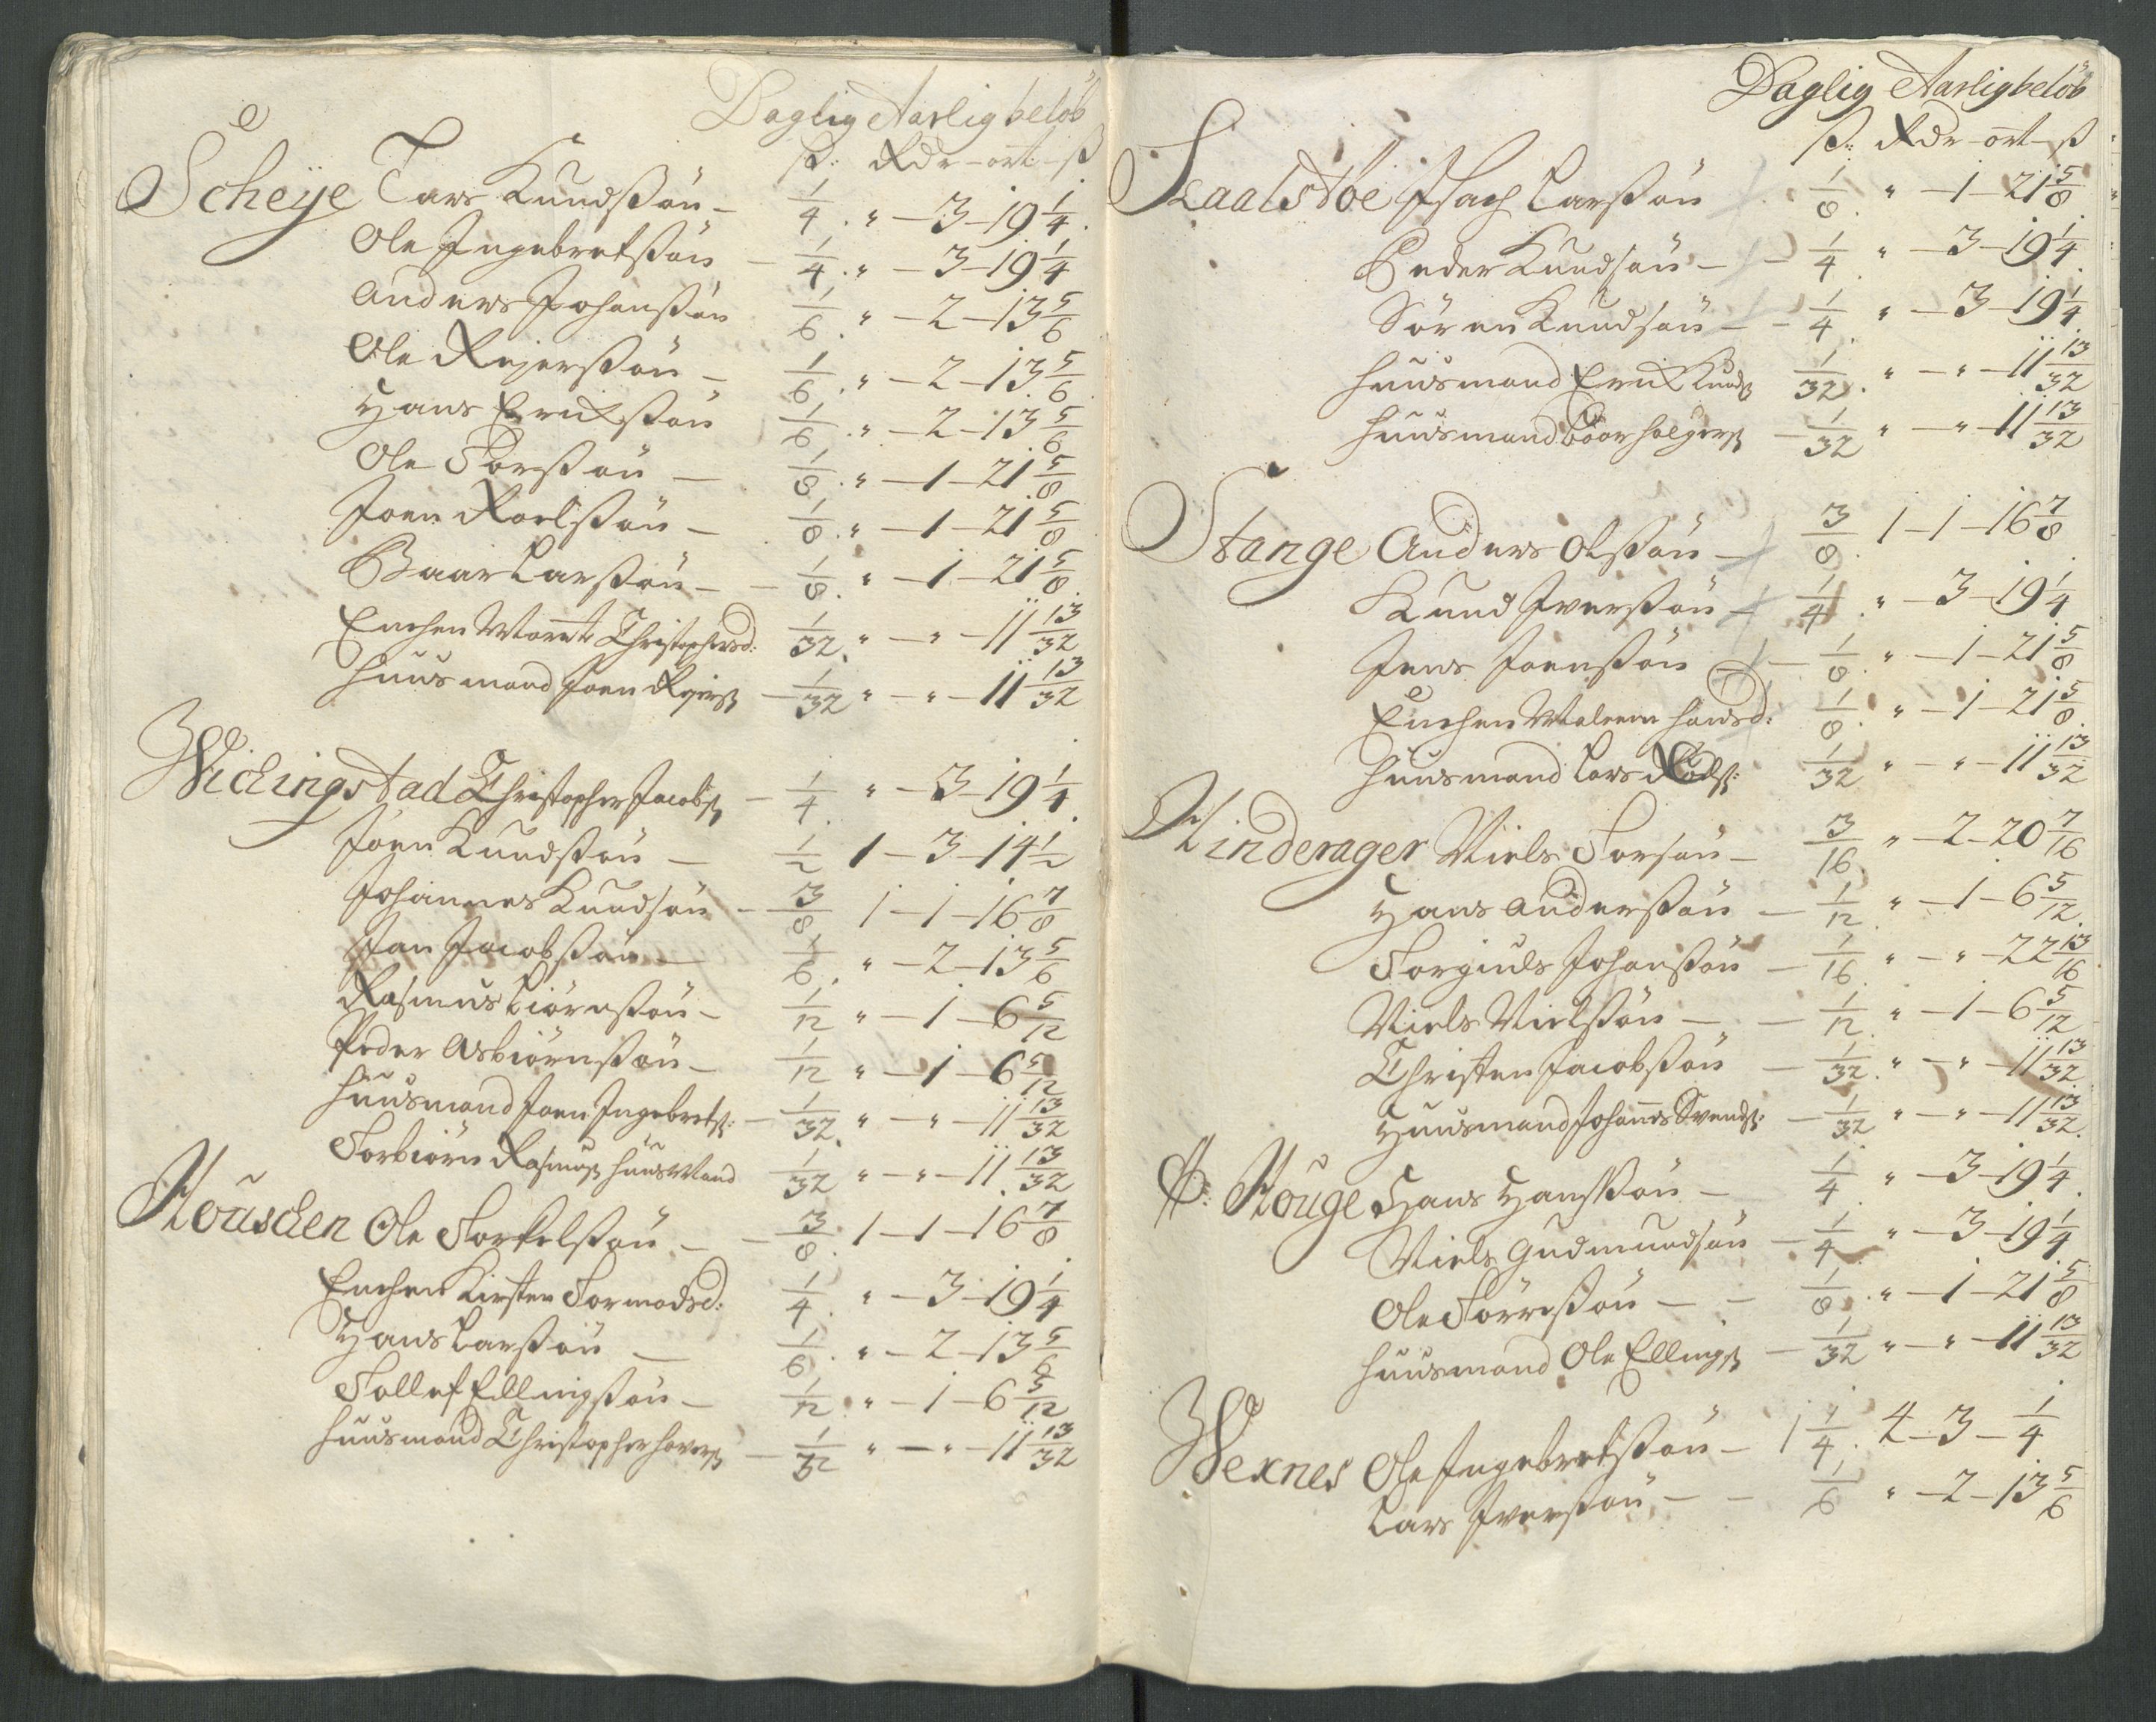 Daglig Aarlig belöb
ß: Rdr - ort - ß
Scheÿe Lars Knudßön - 1/4 . " - 3 - 19 1/4
Ole Ingebretßön - 1/4 . " - 3 - 19 1/4
Anders Johanßön 1/6 . " - 2 - 13 5/6
Ole Rejerßön - 1/6 . " - 2 - 13 5/6
Hans Erichßön 1/6 . " - 2 - 13 5/6
Ole Torßön - 1/8 . " - 1 - 21 5/8
Joen Roelßön - 1/8 . " - 1 - 21 5/8
Baar Larßön - 1/8 . " - 1 - 21 5/8
Enchen Christophersd: 1/32 " - " - 11 13/32
Huusmand Joen Rejerß - 1/32 " - " - 11 13/32
Wichingstad Christopher Jacobß - 1/4 . " - 3 - 19 1/4
Joen Knudßön - 1/2 1 - 3 - 14 1/2
Johannes Knudsön - 3/8 1 - 1 - 16 7/8
Jan Jacobßön - 1/6 . " - 2 - 13 5/6
Rasmus Biörnßön - 1/12 " - 1 - 6 5/12
Peder Asbiörnßön - 1/12 " - 1 - 6 5/12
Huusmand Joen Ingebretß: - 1/32 " - " - 11 13/32
Torbiörn Rasmusß HuusMand 1/32 " - " - 11 13/32
Houschen Ole Torkelßön - 3/8 . 1 - 1 - 16 7/8
Enchen Kirsten Tormodsd: 1/4 . " - 3 - 19 1/4
Hans Larßön - 1/6 . " - 2 - 13 5/6
Tollef Ellingßön - 1/12 . " - 1 - 6 5/12
Huusmand Christopher - 1/32 " - " - 11 13/32
Daglig Aarlig belöb
ß: Rdr - ort - ß
Isach Larßön 1/8 . " - 1 - 21 5/8
Peder Knudsön - 1/4 . " - 3 - 19 1/4
Sören Knudsön - 1/4 . " - 3 - 19 1/4
Huusmand Erich Knudß 1/32 . " - " - 11 13/32
Huusmand Boor Holgerß - 1/32 " - " - 11 13/32
Stange Anders Olßön - 3/8 . 1 - 1 - 16 7/8
Knud Iverßön - 1/4 . " - 3 - 19 1/4
Jens Joenßön - 1/8 . " - 1 - 21 5/8
Enchen Malene Hansd: 1/8 . " - 1 - 21 5/8
Huusmand Lars 1/32 " - " - 11 13/32
Hinderager Niels Torsön - 3/16 " - 2 - 20 7/16
Hans Anderßön - 1/12 . " - 1 - 6 5/12
Torgiuls Johanßön - 1/16 " - " - 22 13/16
Niels Nielßön - 1/12 . " - 1 - 6 5/12
Christen Jacobßön - 1/32 . " - " - 11 13/32
Huusmand Johannes Svendß: - 1/32 " - " - 11 13/32
Houge Hans Hanßön - 1/4 " - 3 - 19 1/4
Niels Gudmundsön - 1/4 . " - 3 - 19 1/4
Ole Törreßön - 1/8 . " - 1 - 21 5/8
Huusmand Ole Ellingß - 1/32 " - " - 11 13/32
Wexnes Ole Ingebretßön - 1 1/4 . 4 - 3 - 1/4
Lars Iverßön - 1/6 " - 2 - 13 5/6